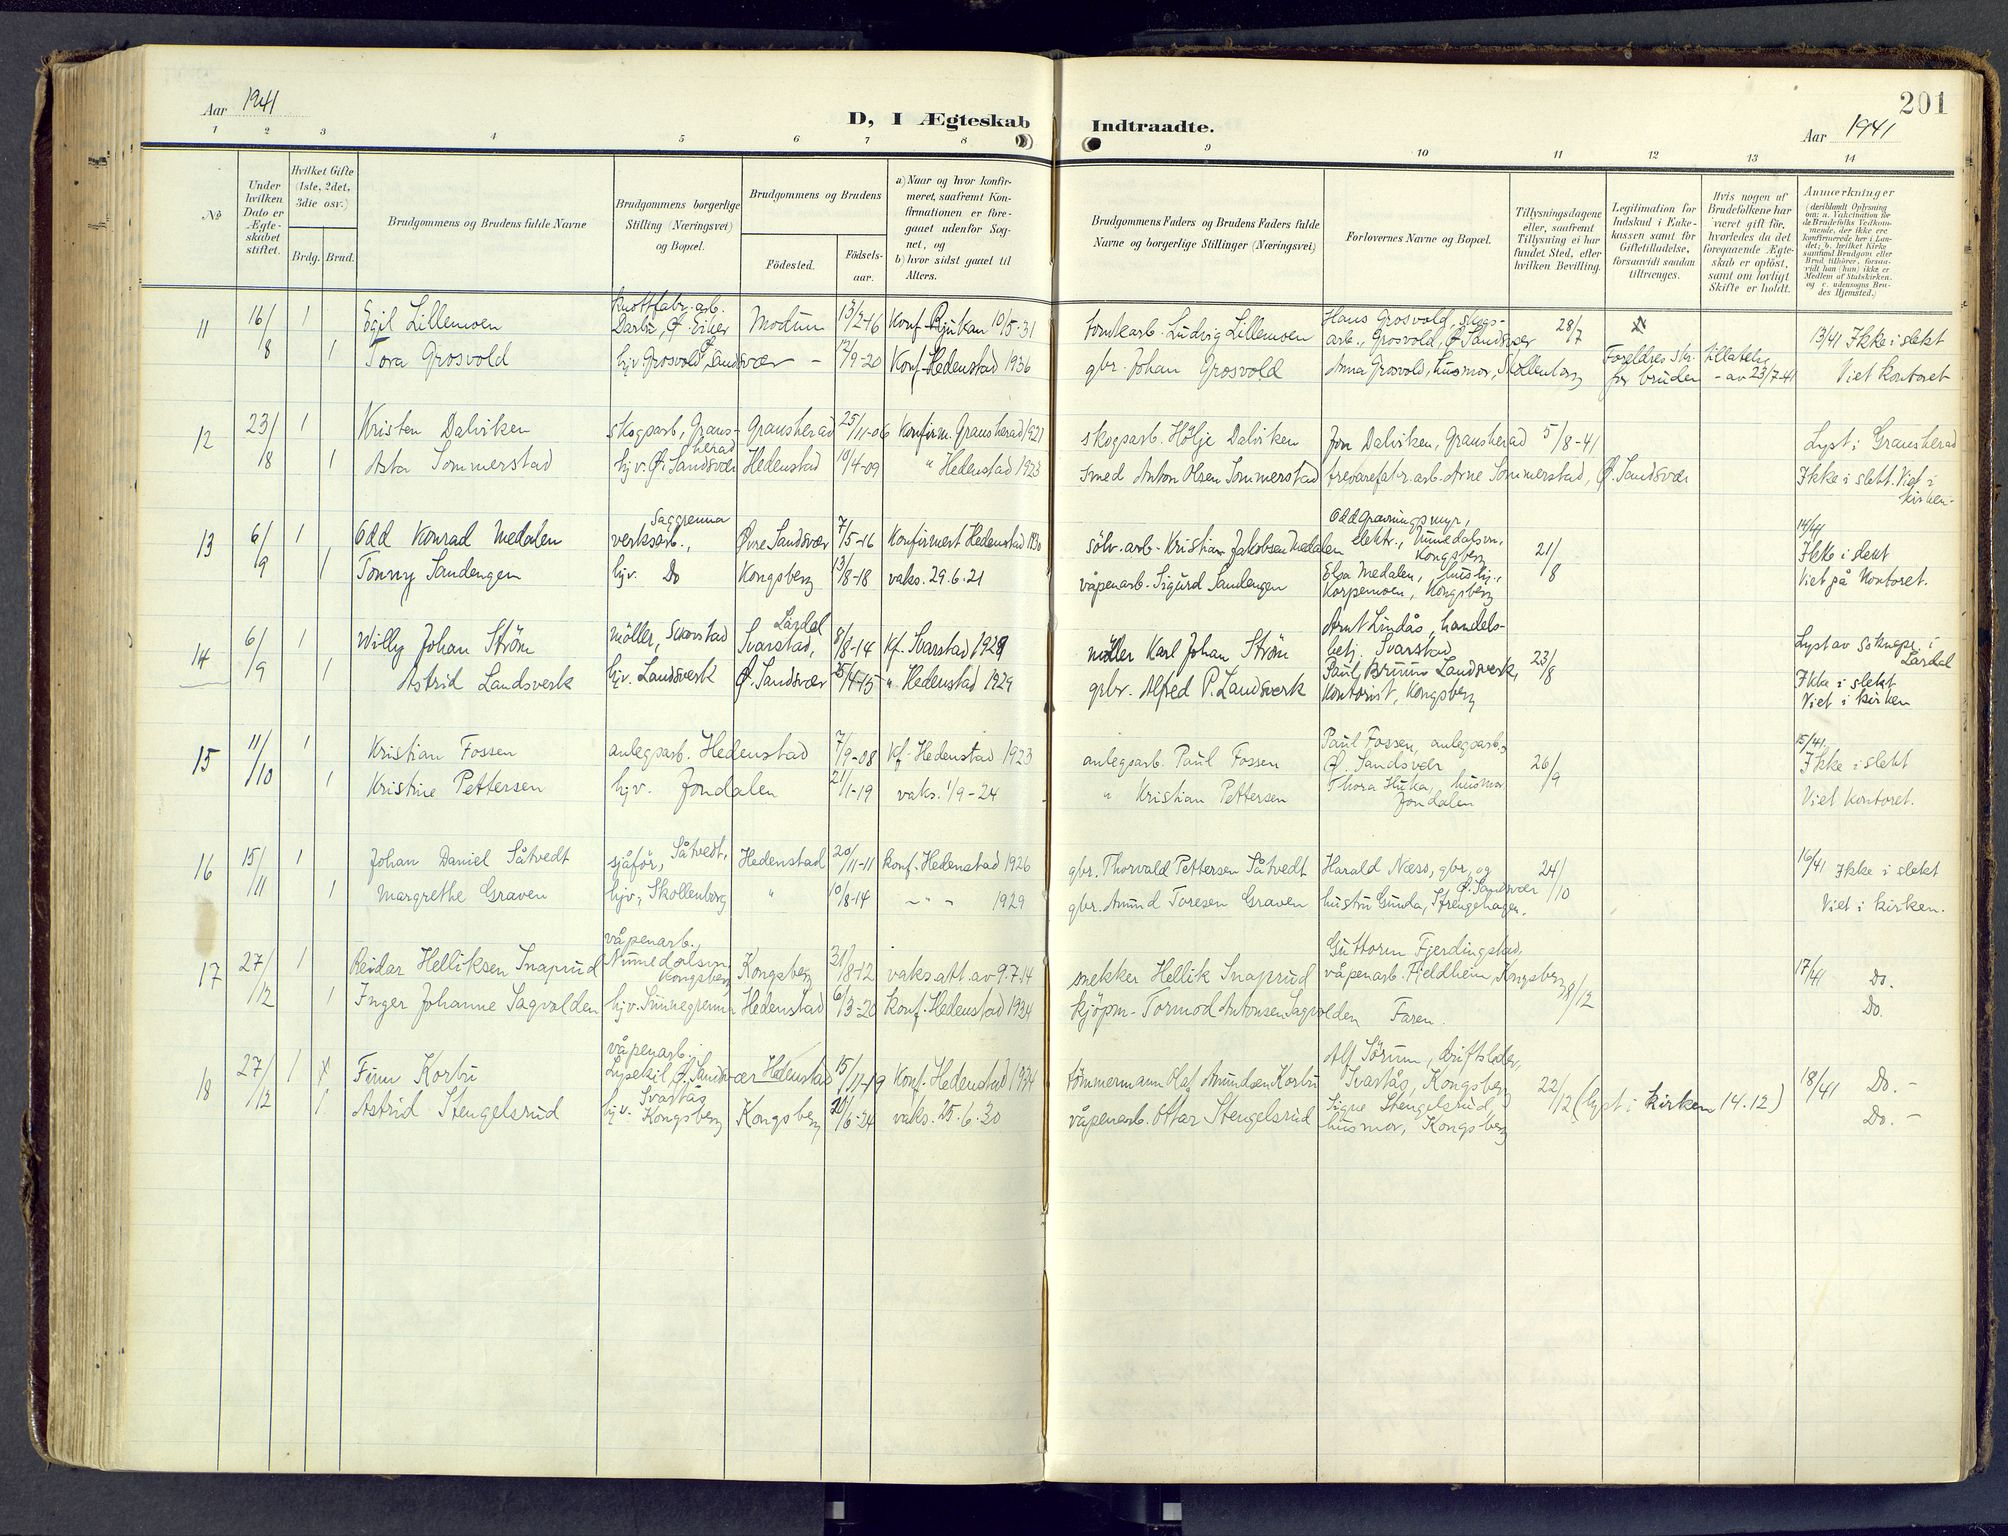 Aar 1941
D, I Ægteskab Indtraadte.
201
Aar 1941
1 2 3 4 5 6 7 8 9 10 11 12 13 14
No
Under hvilken Dato er Ægteskabet stiftet.
Hvilket Gifte (1ste, 2det, 3die osv.)
Brdg. Brud.
Brudgommens og Brudens fulde Navne
Brudgommens borgerlige Stilling (Næringsvei) og Bopæl.
Brudgommens og Brudens
Fødested. Fødselsaar.
a) Naar og hvor konfirmeret, saafremt Konfirmationen er foregaaet udenfor Sognet, og
b) hvor sidst gaaet til Alters.
Brudgommens Faders og Brudens Faders fulde Navne og borgerlige Stillinger (Næringsvei)
Forlovernes Navne og Bopæl.
Tillysningsdagene eller, saafremt Tillysning ei har fundet Sted, efter hvilken Bevilling.
Legitimation for Indskud i Enkekassen samt for Giftetilladelse, forsaavidt saadan tiltrænges.
Hvis nogen af Brudefolkene har været gift før, hvorledes da det foregaaende Ægteskab er opløst, samt om lovligt Skifte er holdt.
Anmærkninger
(deriblandt Oplysning om: a. Vakcination for de Brudefolks Vedkommende, der ikke ere konfirmerede her i Landet; b. hvilket Kirkesamfund Brudgom eller Brud tilhører, forsaavidt han (hun) ikke er Medlem af Statskirken, og c. udensogns Brudes Hjemsted.)
11 16/8 1 Egil Lillemoen Knottfabr. arb. Darbu, Ø. Eiker Modum 13/2-16 Konf. Rjukan 10/5-31 tomtearb. Ludvig Lillemoen Hans Grosvold, skogsarb., Grosvold, Ø. Sandsvær 28/7 13/41 Ikke i slekt
1 Tora Grosvold hjv. Grosvold, Ø. Sandsvær - 12/9-20 Konf. Hedenstad 1936 gbr. Johan Grosvold Anna Grosvold, husmor, Skollenborg Foreldres skr. tillatelse for bruden - av 23/7-41 Viet kontoret
12 23/8 1 Kristen Dalviken skogsarb., Gransherad Gransherad 25/11-06 Konfirm. Gransherad 1921 skogsarb. Hølje Dalviken Jon Dalviken, Gransherad 5/8-41 Lyst i Gransherad
1 Asta Sommerstad hjv. Ø. Sandsvær Hedenstad 10/4-09 " Hedenstad 1923 smed Anton Olsen Sommerstad trevarefabr. arb. Arne Sommerstad, Ø. Sandsvær Ikke i slekt. Viet i kirken.
13 6/9 1 Odd Konrad Medalen Saggrenna verksarb., Øvre Sandsvær 7/5-16 Konfirmert Hedenstad 1930 sølv. arb. Kristian Jakobsen Medalen Odd Gravningsmyr, elektr., Numedalsvn, Kongsberg 21/8 14/41 Ikke i slekt
1 Tonny Sandengen hjv. Do Kongsberg 13/8-18 vaks. 29.6.21 våpenarb. Sigurd Sandengen Elsa Medalen, hushj., Korpemoen, Kongsberg Viet på Kontoret.
14 6/9 1 Willy Johan Strøm møller, Svarstad Svarstad, Lardal 8/8-14 Kf. Svarstad 1929 møller Karl Johan Strøm Arnt Lindås, handelsbetj. Svarstad 23/8 Lyst av soknepr. i Lardal
1 Astrid Landsverk hjv. Landsverk Ø. Sandsvær 25/4-15 " Hedenstad 1929 gbr. Alfred P. Landsverk Paul Bruun Landsverk, Kontorist, Kongsberg Ikke i slekt Viet i kirken
15 11/10 1 Kristian Fossen anlegsarb. Hedenstad 7/9-08 Kf. Hedenstad 1923 anlegsarb. Paul Fossen Paul Fossen, anlegsarb., Ø. Sandsvær 26/9 15/41 Ikke i slekt
1 Kristine Pettersen hjv. Jondalen 21/1-19 vaks. 1/9-24 " Kristian Pettersen Thora Huka, husmor Jondalen Viet kontoret.
16 15/11 1 Johan Daniel Såtvedt sjåfør, Såtvedt, Hedenstad 20/11-11 konf. Hedenstad 1926 gbr. Thorvald Pettersen Såtvedt Harald Næss, gbr. og 24/10 16/41 Ikke i slekt
1 Margrethe Graven hjv., Skollenborg " 10/8-14 - " - 1929 gbr. Amund Toresen Graven hustru Gunda, Strengehagen, Ø. Sandsvær Viet i kirken.
17 27/12 1 Reidar Helliksen Snaprud våpenarb., Numedalsvn, Kongsberg Kongsberg 31/8-12 vaks. att. av 9.7.14 snekker Hellik Snaprud Guttorm Fjerdingstad, våpenarb. Fjeldheim, Kongsberg 8/12 17/41 Do.
1 Inger Johanne Sagvolden hjv. Hedenstad 6/3-20 Konf. Hedenstad 1934 kjøpm. Tormod Antonsen Sagvolden Faren. Do.
18 27/12 1 Finn Korbu våpenarb. Lysekil Ø. Sandsvær Hedenstad 15/11-19 Konf. Hedenstad 1934 tømmermann Olaf Amundsen Korbu Alf Sørum, driftsleder, Svartås, Kongsberg 22/12 (lyst i kirken 14.12) 18/41 Do. -
1 Astrid Stengelsrud hjv. Svartås Kongsberg Kongsberg 20/6-24 vaks. 25.6.30 våpenarb. Ottar Stengelsrud Signe Stengelsrud, husmor, Kongsberg Do -